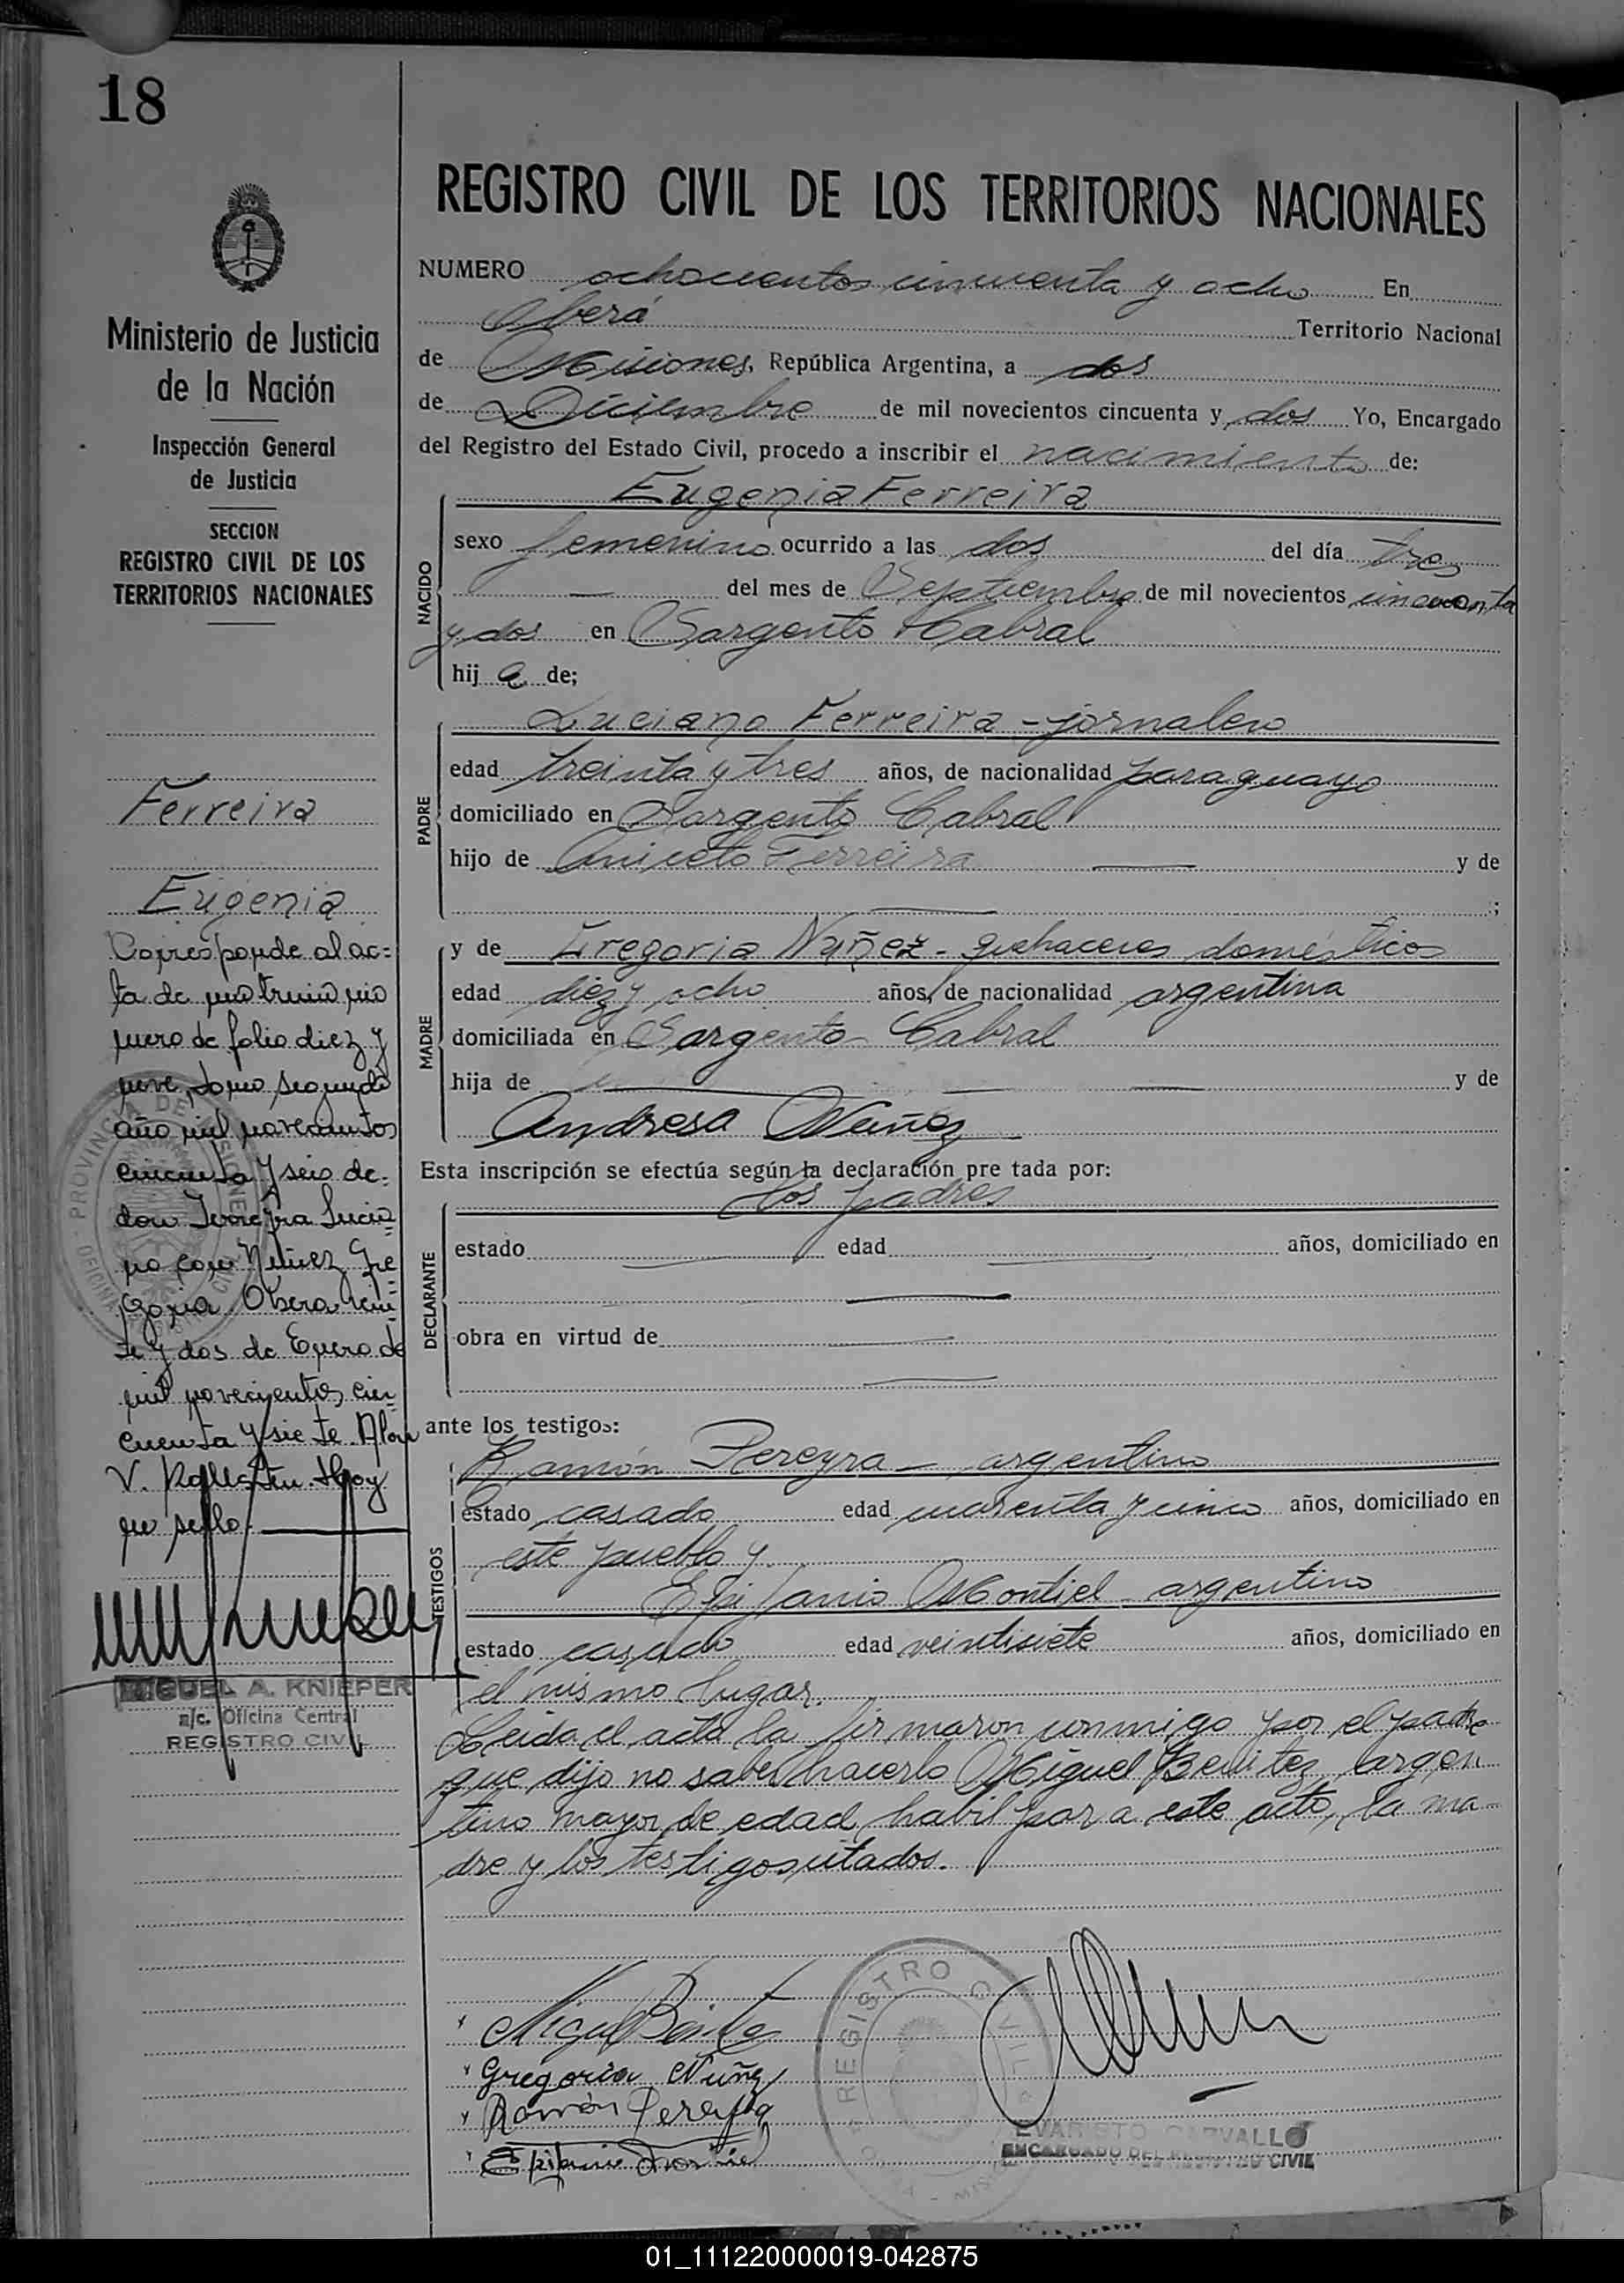 18
Ministerio de Justicia
de la Nación
Inspección General
de Justicia
SECCION
REGISTRO CIVIL DE LOS
TERRITORIOS NACIONALES
Ferreira
Eugenia
Corresponde al ac-
ta de matrimonio
de folio diez y
nueve, tomo segundo
año mil novecientos
cincuenta y seis de
don Ferreyra Lucia
no con Núñez Gre
goria Oberá vein
te y dos de Enero de
mil novecientos cin
cuenta y siete.
V. Hay
un sello.
MIGUEL A. KNIEPER
a/c. Oficina Central
REGISTRO CIVIL
REGISTRO CIVIL DE LOS TERRITORIOS NACIONALES
NUMERO ochocientos cincuenta y ocho En
Oberá Territorio Nacional
de Misiones, República Argentina, a dos
de Diciembre de mil novecientos cincuenta y dos Yo, Encargado
del Registro del Estado Civil, procedo a inscribir el nacimiento de:
Eugenia Ferreira
NACIDO
sexo femenino ocurrido a las dos del día tres
— del mes de Septiembre de mil novecientos cincuenta
y dos en Sargento Cabral
hij a de;
PADRE
Luciano Ferreira - jornalero
edad treinta y tres años, de nacionalidad paraguayo
domiciliado en Sargento Cabral
hijo de Aniceto Ferreira — y de
— ;
MADRE
y de Gregoria Nuñez - quehaceres domésticos
edad diez y ocho años, de nacionalidad argentina
domiciliada en Sargento Cabral
hija de — — — y de
Andresa Nuñez
Esta inscripción se efectúa según la declaración pre tada por:
los padres
DECLARANTE
estado — edad — años, domiciliado en
—
obra en virtud de —
—
ante los testigos:
TESTIGOS
Ramón Pereyra - argentino
estado casado edad cuarenta y cinco años, domiciliado en
este pueblo y
Epifanio Montiel - argentino
estado casado edad veintisiete años, domiciliado en
el mismo lugar.
Leida el acta la firmaron conmigo y por el padre
que dijo no saber hacerlo Miguel Benitez, argen
tino mayor de edad, habil para este acto, la ma-
dre y los testigos citados.
Miguel Benitez
Gregoria Nuñez
Ramón Pereyra
Epifanio Montiel
REGISTRO CIVIL
EVARISTO CARVALLO
ENCARGADO DEL REGISTRO CIVIL
01_111220000019-042875